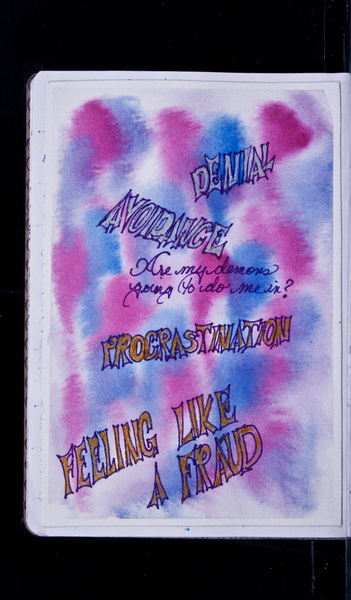 DENIAL
AVOIDANCE
Are my demons
going to do me in?
PROCRASTINATION
FEELING LIKE
A FRAUD